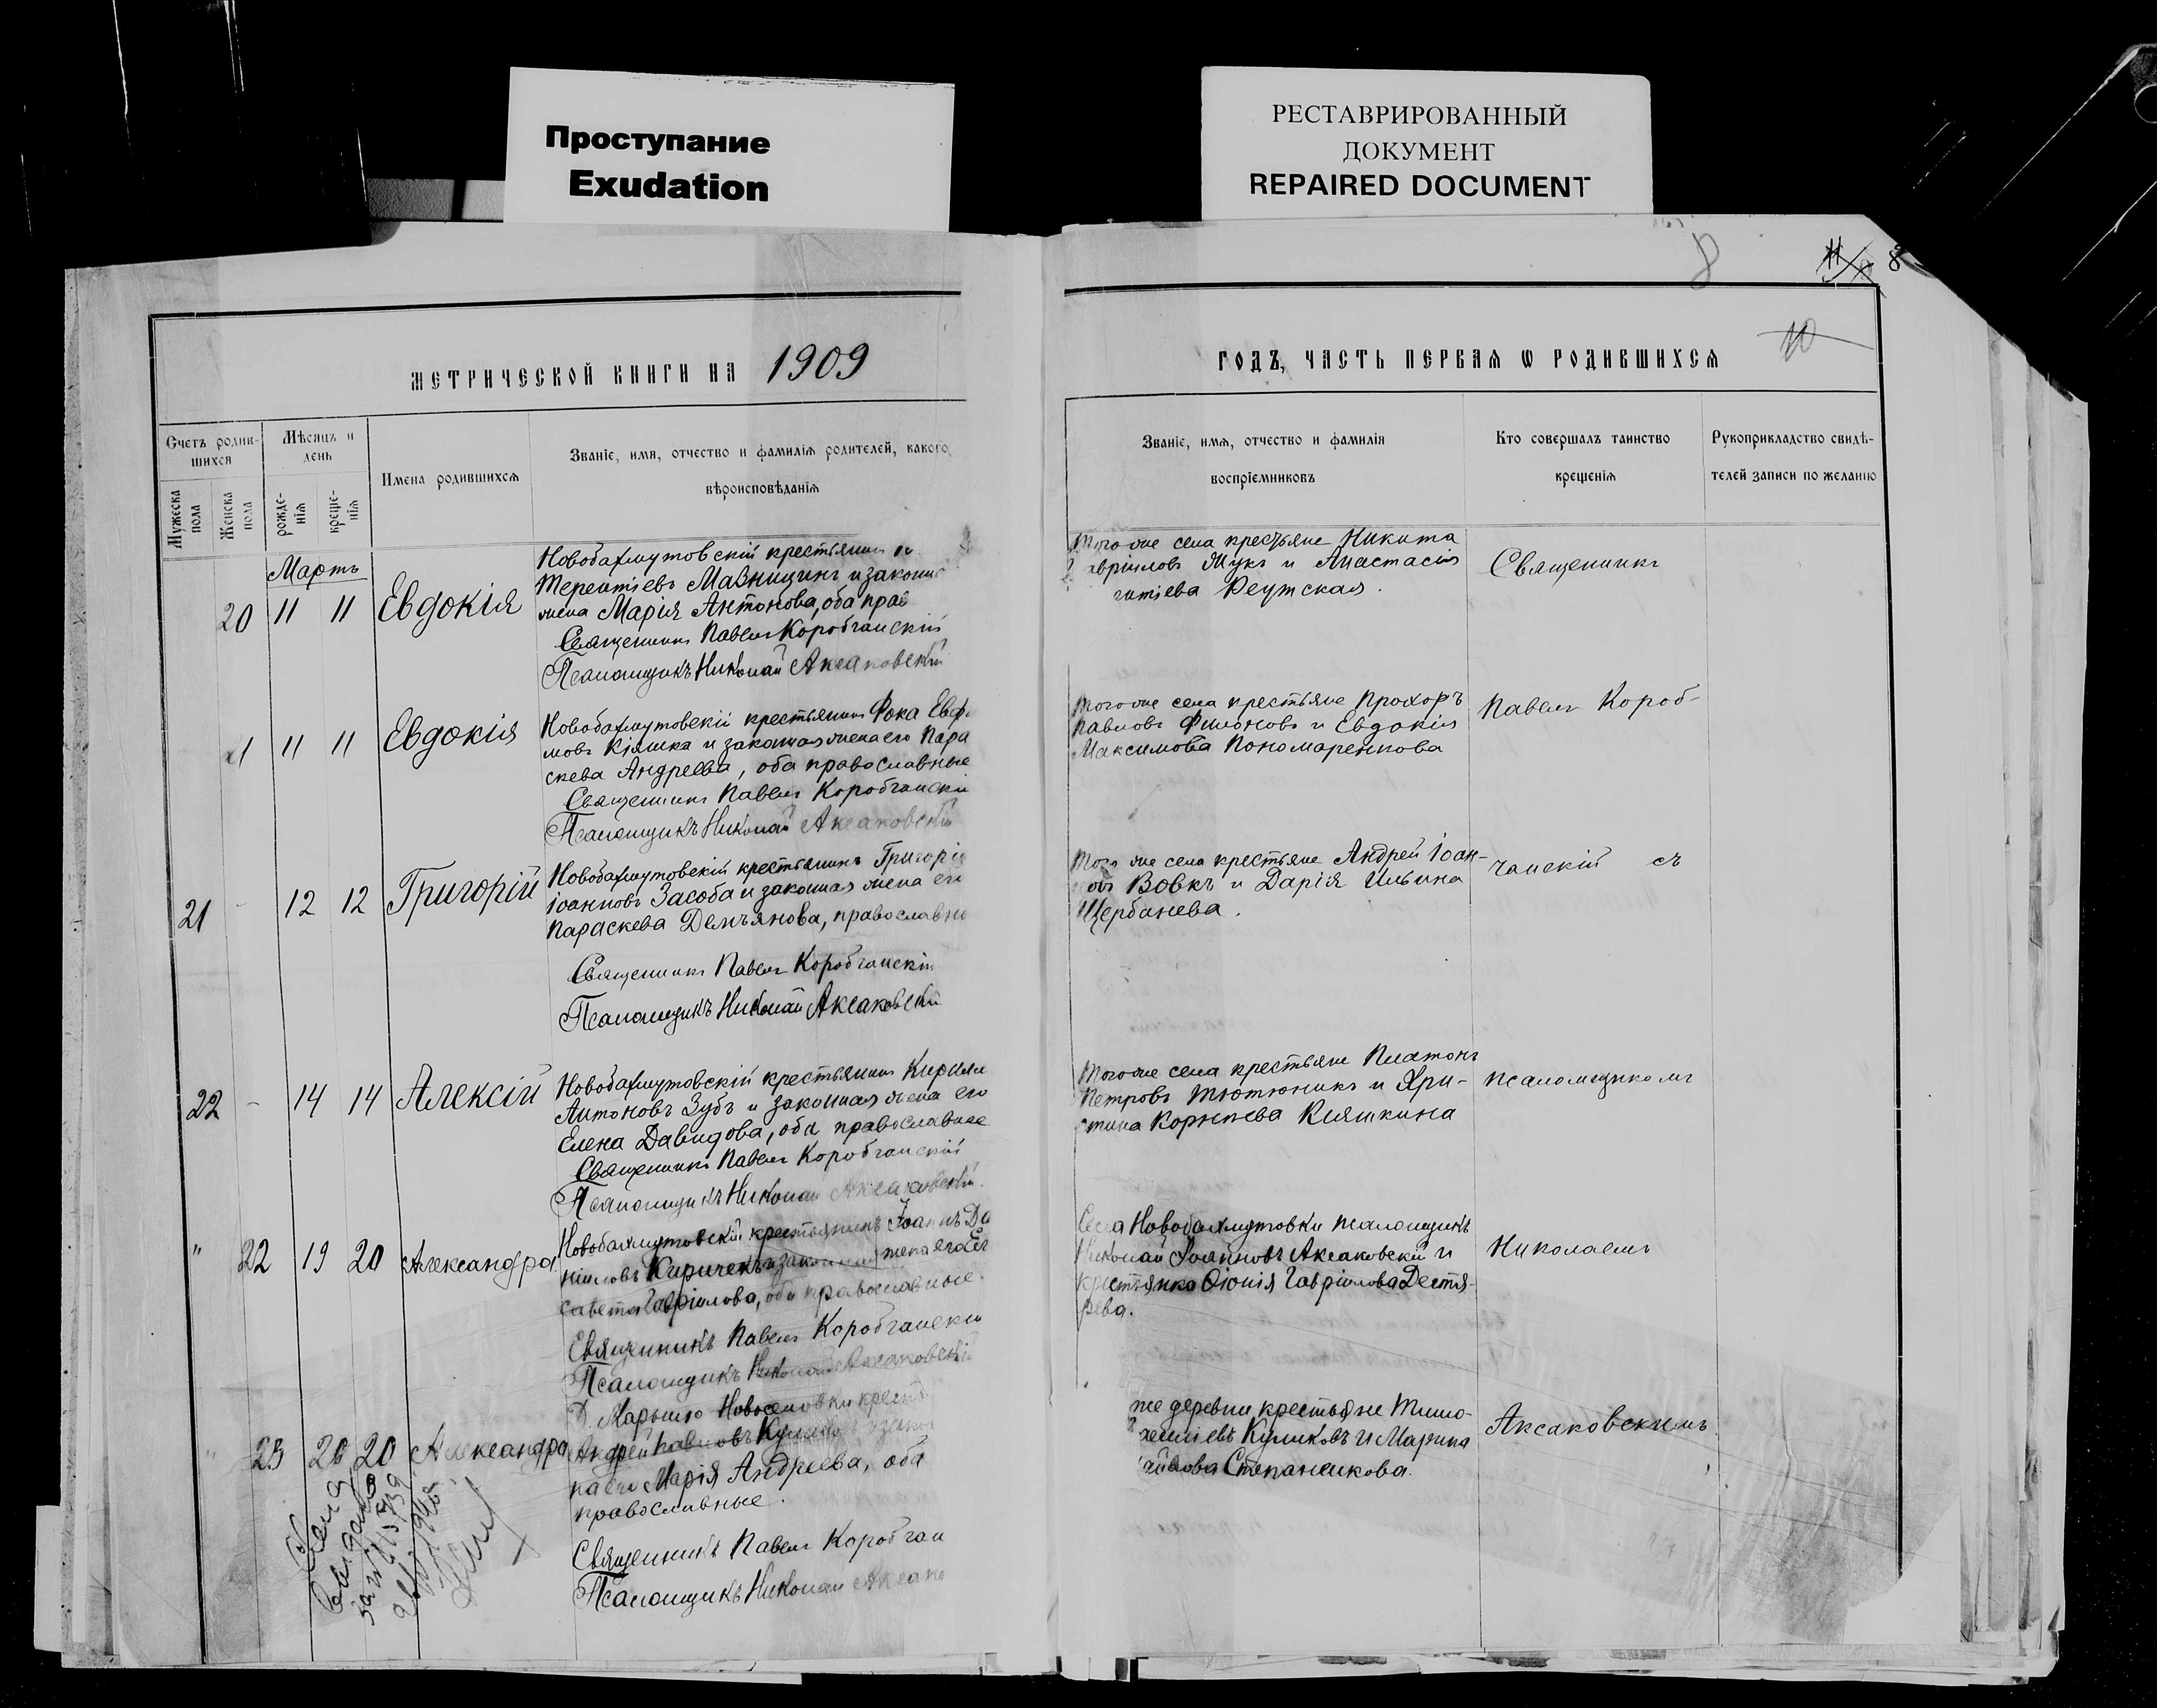 Проступание
Exudation
РЕСТАВРИРОВАННЫЙ
ДОКУМЕНТ
REPAIRED DOCUMENT
8
11
8
10
МЕТРИЧЕСКОЙ КНИГИ НА 1909
ГОДЪ, ЧАСТЬ ПЕРВАЯ Ѡ РОДИВШИХСЯ
Счетъ родив-
шихся
Мужеска пола
Женска пола
Мѣсяцъ и
день
рожде-
нія
креще-
нія
Имена родившихся
Званіе, имя, отчество и фамилія родителей, какого
вѣроисповѣданія
Званіе, имя, отчество и фамилія
воспріемниковъ
Кто совершалъ таинство
крещенія
Рукоприкладство свидѣ-
телей записи по желанію
Мартъ
20 11 11 Евдокія
Новобахмутовскій крестьянин
Терентіевъ Мазницинъ и законн
жена Марія Антонова, оба прав
Священникъ Павелъ Коробчанскій
Псаломщикъ Николай Аксаковскій
Того же села крестьяне Никита
авріиловъ Жукъ и Анастасія
Реутская.
Священникъ
1 11 11 Евдокія
Новобахмутовскій крестьянинъ Фока Евф
мовъ Кіяшка и законная жена его Пара
скева Андреева, оба православные
Священникъ Павелъ Коробчански
Псаломщикъ Николай Аксаковскій
Того же села крестьяне Прохоръ
Павловъ Филоновъ и Евдокія
Максимова Пономаренкова
Павелъ Короб-
21 - 12 12 Григорій
Новобахмутовскій крестьянинъ Григорій
Іоанновъ Засоба и законная жена его
Параскева Демъянова, православн
Священникъ Павелъ Коробчанскій
Псаломщикъ Николай Аксаковскій
Того же села крестьяне Андрей Іоан-
овъ Вовкъ и Дарія Ильина
Щербанева.
чанскій съ
22 - 14 14 Алексій
Новобахмутовскій крестьянинъ Кирилл
Антоновъ Зубъ и законная жена его
Елена Давидова, оба православные
Священникъ Павелъ Коробчанскій
Псаломщикъ Николай Аксаковскій.
Того же села крестьяне Платонъ
Петровъ Тютюникъ и Хри-
стина Корнѣева Кияшкина
псаломщикомъ
" 22 19 20 Александра
Новобахмутовскій крестьянинъ Іоаннъ Да
ніиловъ Киричекъ и законная жена его Ели
савета Гавріилова, оба православные.
Священникъ Павелъ Коробчански
Псаломщикъ Николай Аксаковскій
Села Новобахмутовки псаломщикъ
Николай Іоанновъ Аксаковскій и
крестьянка Гавріилова Дегтя-
рева.
Николаемъ
" 23 20 20 Александра
Д. Марьино Новоселовки кресть
Андрей Павловъ Куликовъ и закон
на его Марія Андреева, оба
православные.
Священникъ Павелъ Коробчан
Псаломщикъ Николай Аксако
же деревни крестьяне Тимо-
Куликовъ и Марина
Степаненкова.
Аксаковскимъ.